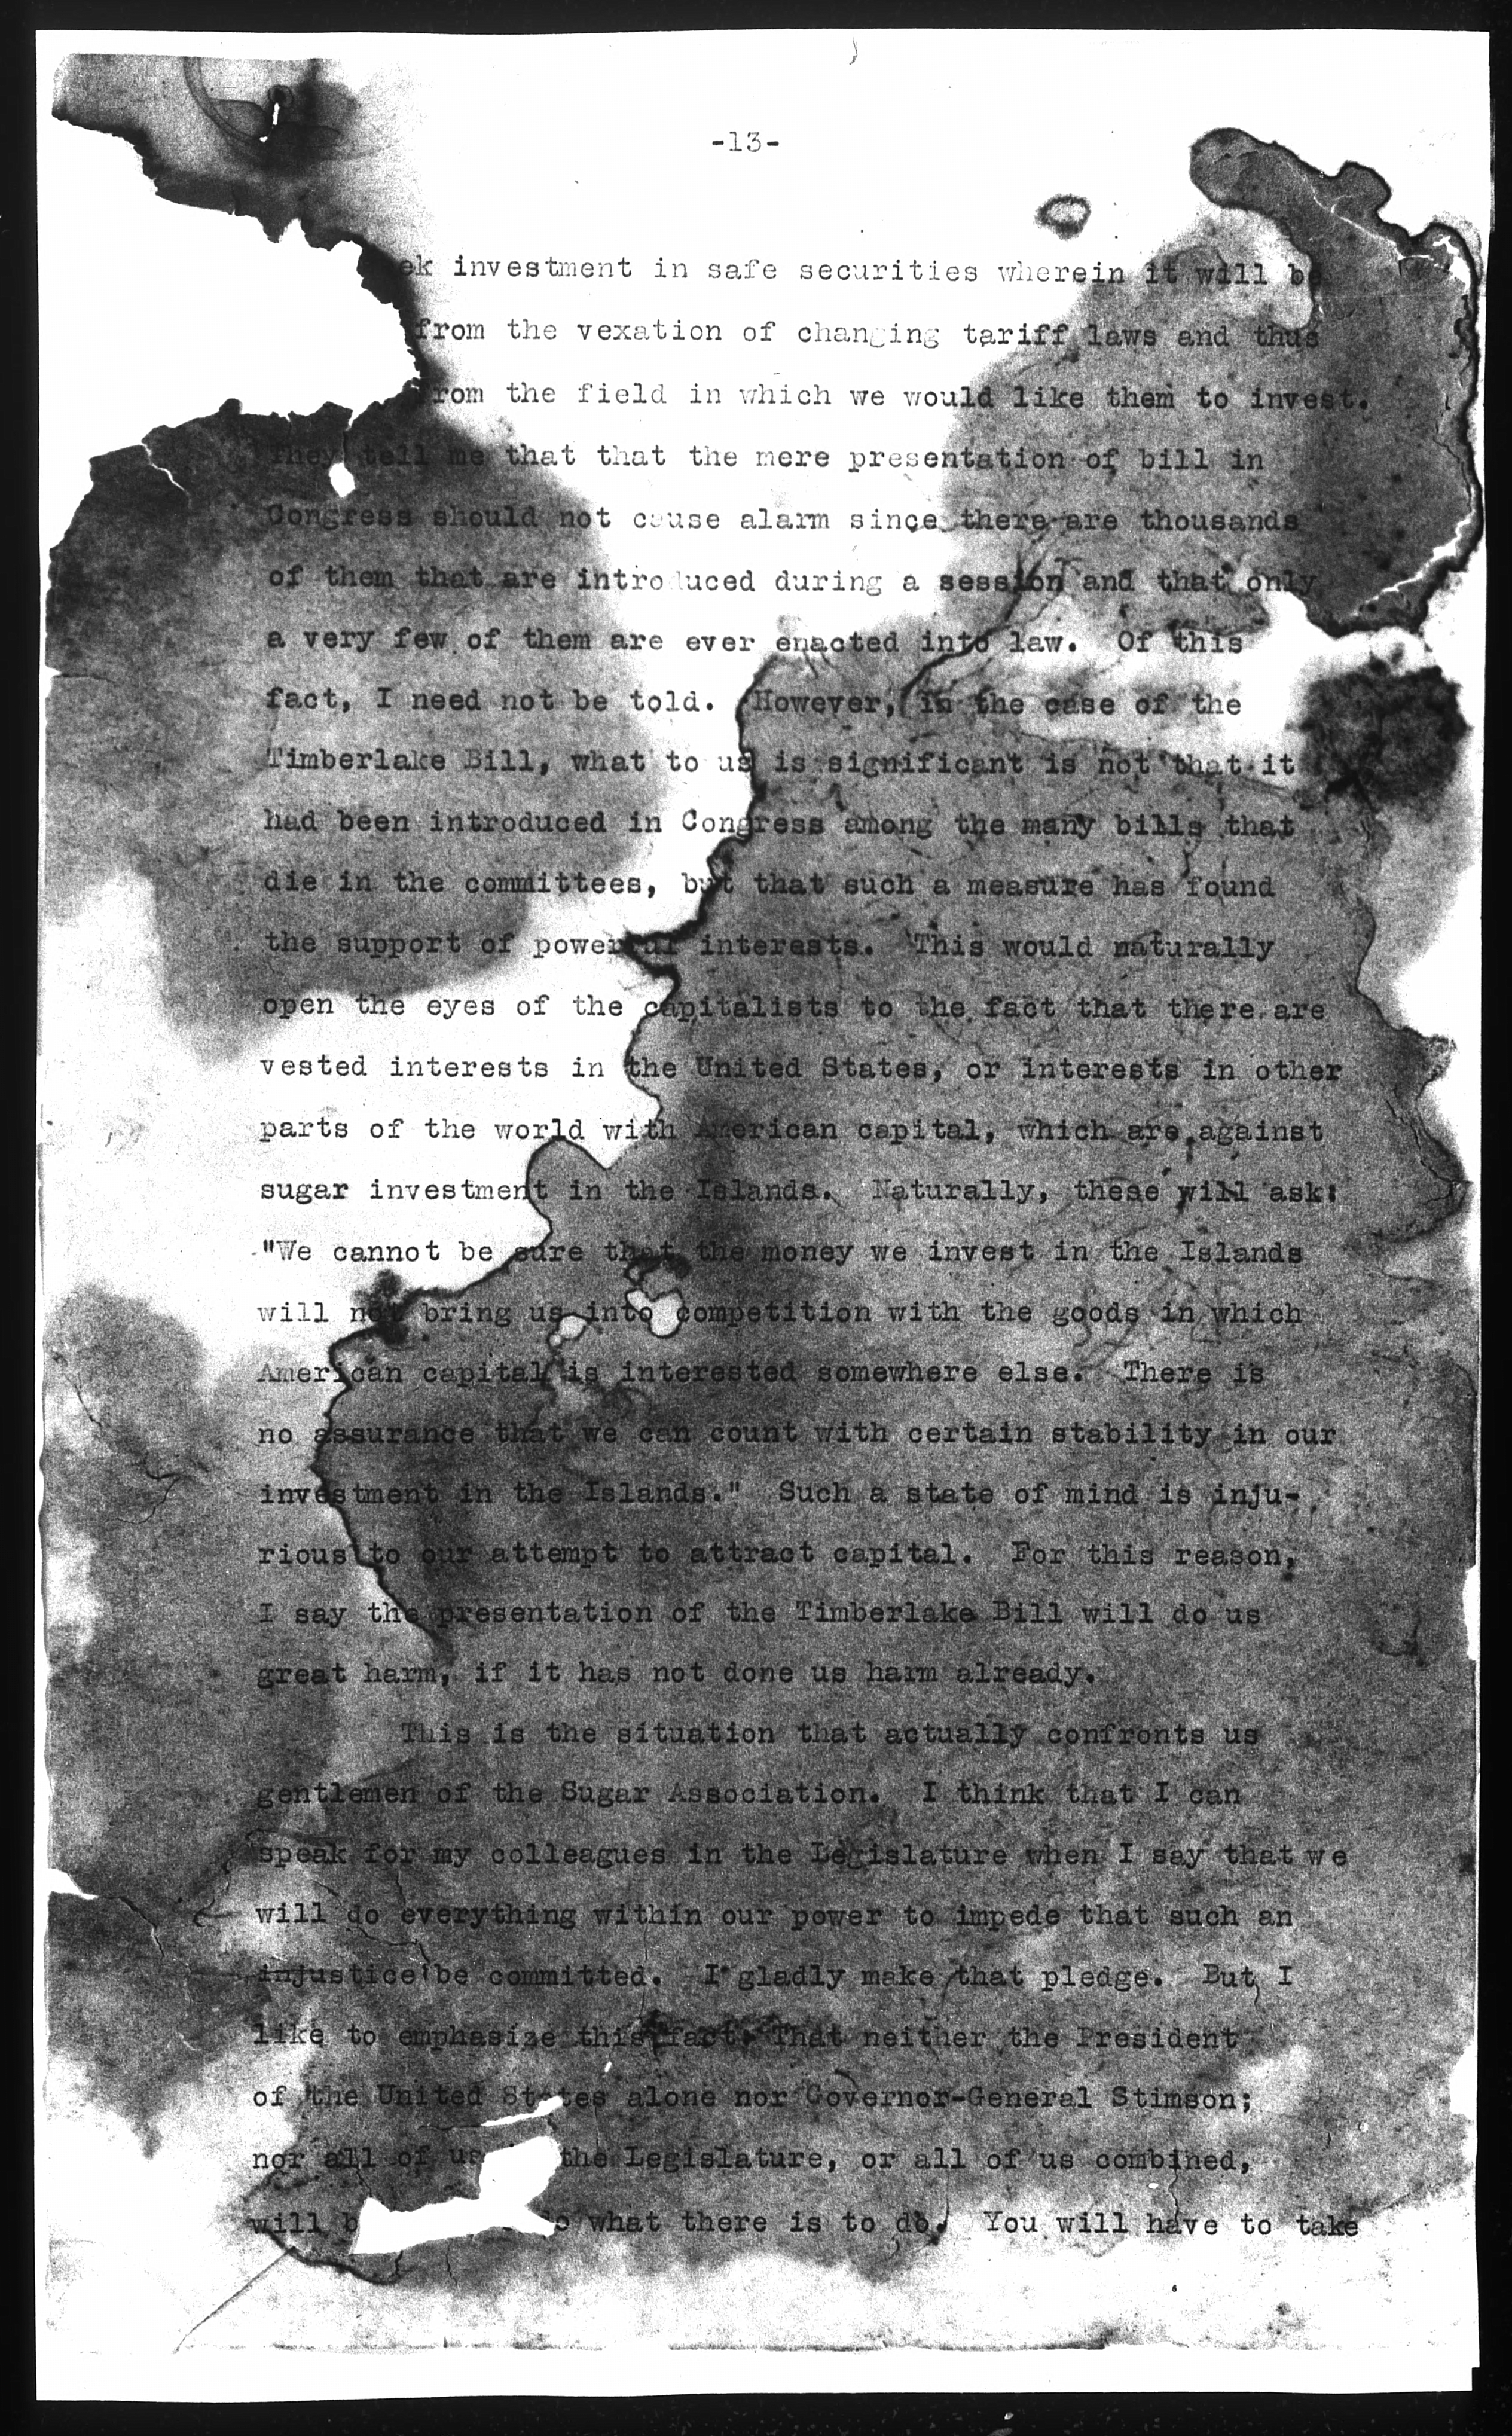 -13-
ek investment in safe securities wherein it will be
from the vexation of changing tariff laws and thus
rom the field in which we would like them to invest.
They tell me that that the mere presentation of bill in
Congress should not cause alarm since there are thousands
of them that are introduced during a session and that only
a very few of them are ever enacted into law. Of this
fact, I need not be told. However, in the case of the
Timberlake Bill, what to us is significant is not that it
had been introduced in Congress among the many bills that
die in the committees, but that such a measure has found
the support of powerful interests. This would naturally
open the eyes of the capitalists to the fact that there are
vested interests in the United States, or interests in other
parts of the world with American capital, which are against
sugar investment in the Islands. Naturally, these will ask:
"We cannot be sure that the money we invest in the Islands
will not bring us into competition with the goods in which
American capital is interested somewhere else. There is
no assurance that we can count with certain stability in our
investment in the Islands." Such a state of mind is inju-
rious to our attempt to attract capital. For this reason,
I say the presentation of the Timberlake Bill will do us
great harm, if it has not done us harm already.
This is the situation that actually confronts us
gentlemen of the Sugar Association. I think that I can
speak for my colleagues in the Legislature when I say that we
will do everything within our power to impede that such an
injustice be committed. I gladly make that pledge. But I
like to emphasize this fact: That neither the President
of the United States alone nor Governor-General Stimson;
nor all of us the Legislature, or all of us combined,
will b what there is to do. You will have to take